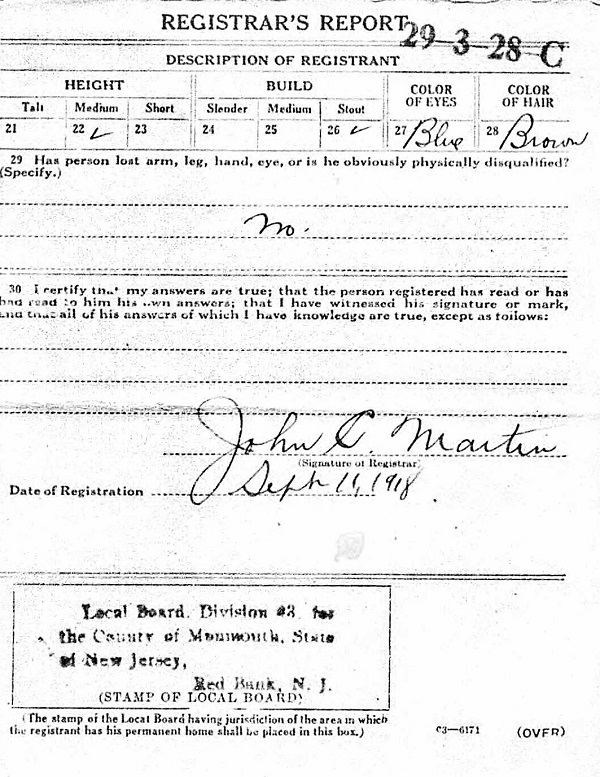 REGISTRAR'S REPORT
29-3-28 C
DESCRIPTION OF REGISTRANT
HEIGHT BUILD COLOR OF EYES COLOR OF HAIR
Tall Medium Short Slender Medium Stout
21 22 ✓ 23 24 25 26 ✓ 27 Blue 28 Brown
29 Has person lost arm, leg, hand, eye, or is he obviously physically disqualified?
(Specify.)
No.
30 I certify that my answers are true; that the person registered has read or has
had read to him his own answers; that I have witnessed his signature or mark,
and that all of his answers of which I have knowledge are true, except as follows:
John C. Martin
(Signature of Registrar)
Date of Registration Sept 11, 1918
Local Board, Division #3 for
the County of Monmouth, State
of New Jersey,
Red Bank, N. J.
(STAMP OF LOCAL BOARD)
(The stamp of the Local Board having jurisdiction of the area in which
the registrant has his permanent home shall be placed in this box.)
C3—6171 (OVER)